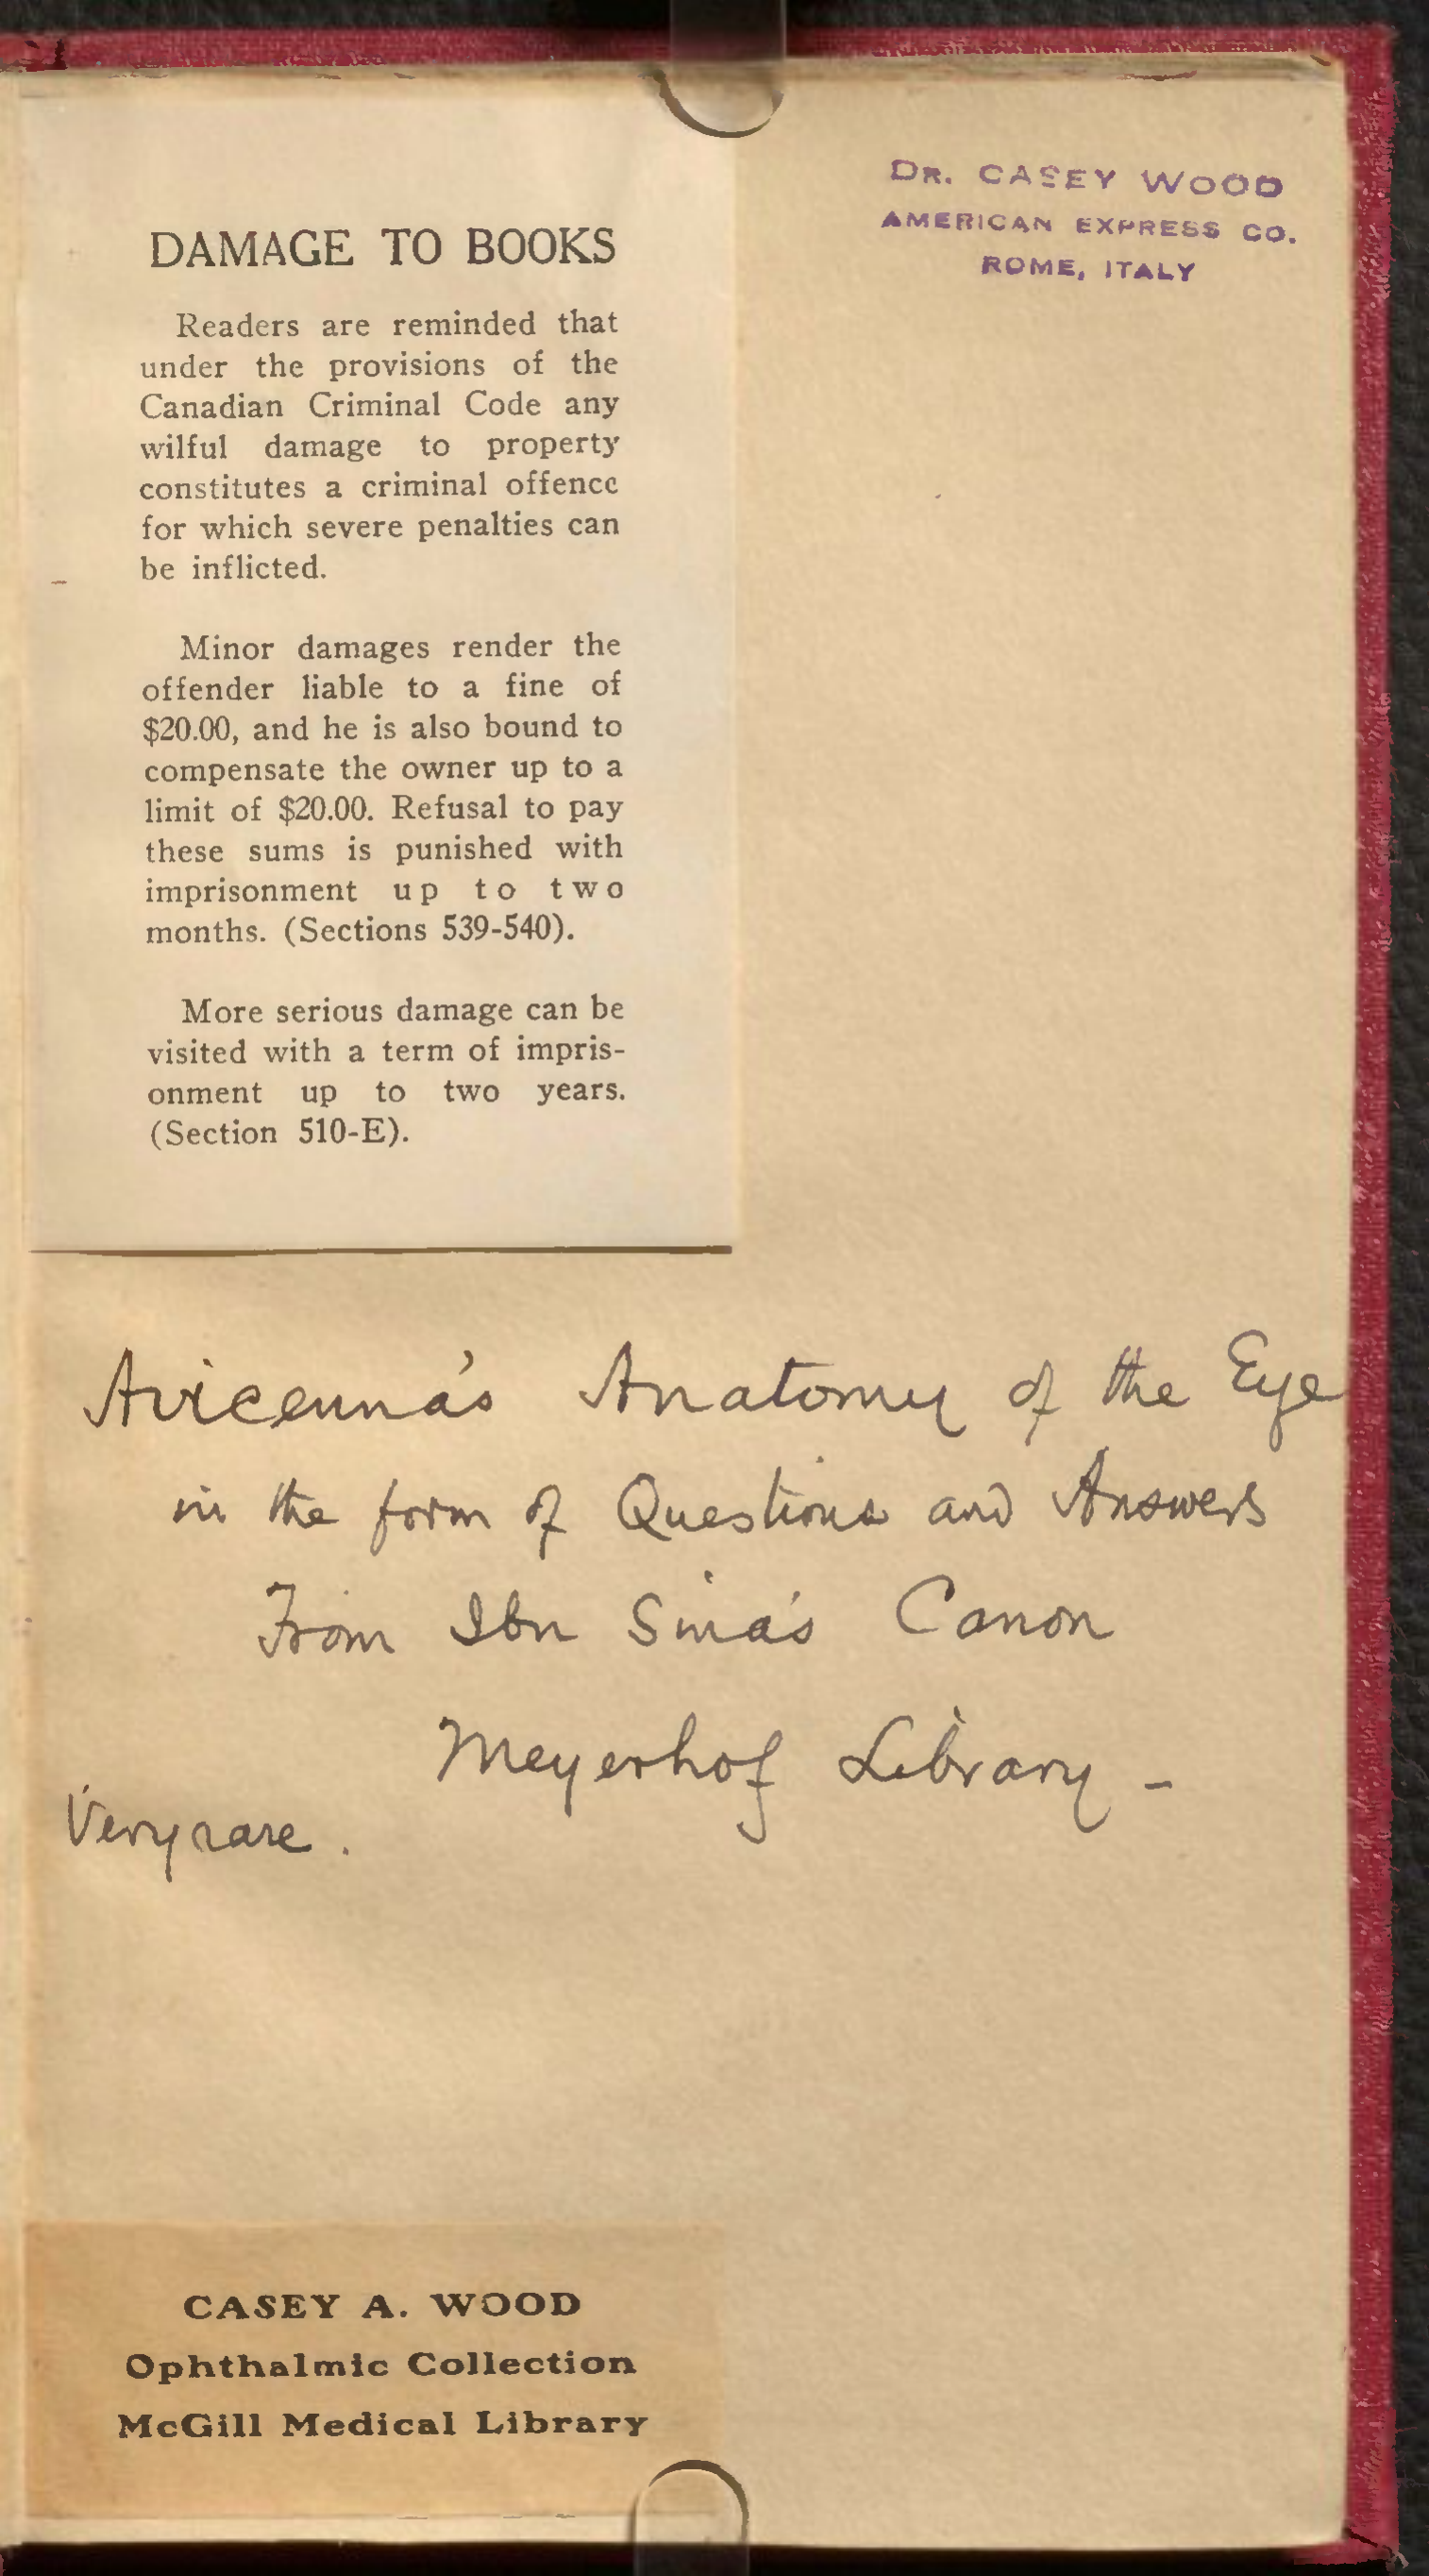 DR. CASEY WOOD
AMERICAN EXPRESS CO.
ROME, ITALY
DAMAGE TO BOOKS
Readers are reminded that
under the provisions of the
Canadian Criminal Code any
wilful damage to property
constitutes a criminal offence
for which severe penalties can
be inflicted.
Minor damages render the
offender liable to a fine of
$20.00, and he is also bound to
compensate the owner up to a
limit of $20.00. Refusal to pay
these sums is punished with
imprisonment up to two
months. (Sections 539-540).
More serious damage can be
visited with a term of impris-
onment up to two years.
(Section 510-E).
Avicenna's Anatomy of the Eye
in the form of Questions and Answers
From Ibn Sina's Canon
Meyerhof Library -
Very rare.
CASEY A. WOOD
Ophthalmic Collection
McGill Medical Library